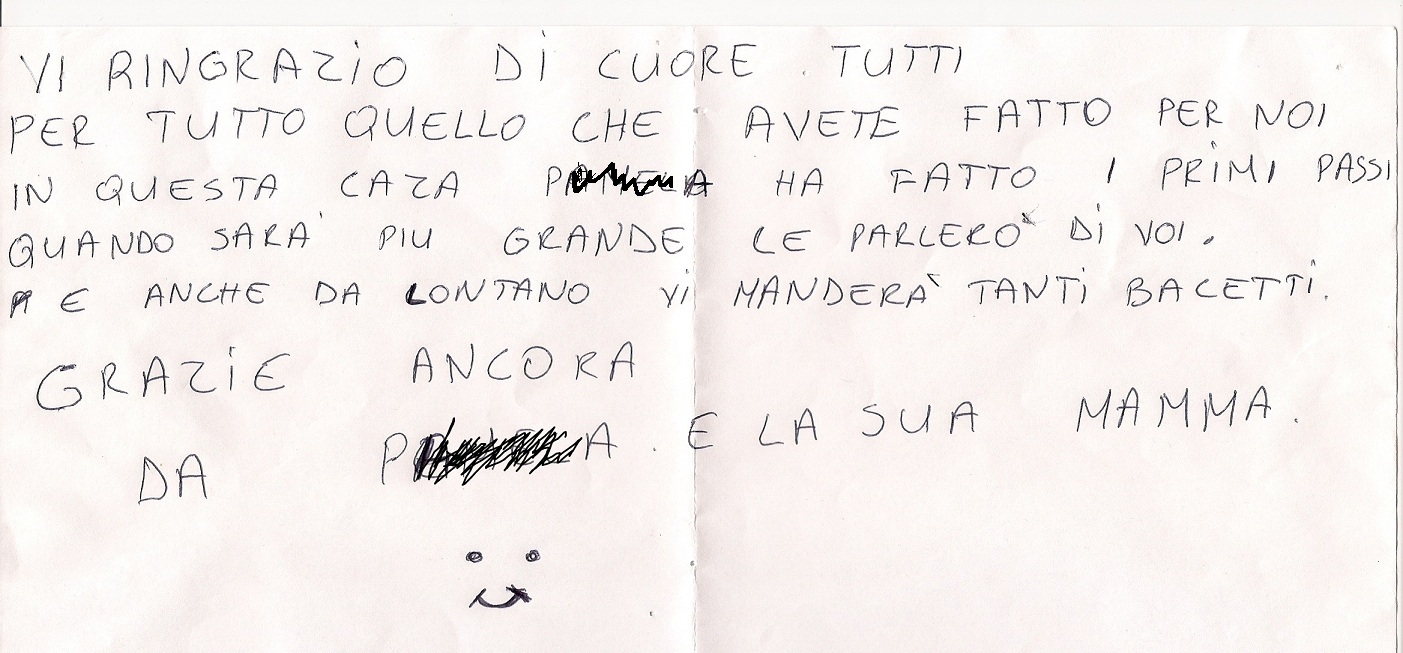 VI RINGRAZIO DI CUORE TUTTI
PER TUTTO QUELLO CHE AVETE FATTO PER NOI
IN QUESTA CAZA HA FATTO I PRIMI PASSI
QUANDO SARA' PIU GRANDE LE PARLERO' DI VOI.
E ANCHE DA LONTANO VI MANDERA' TANTI BACETTI.
GRAZIE ANCORA
DA E LA SUA MAMMA.